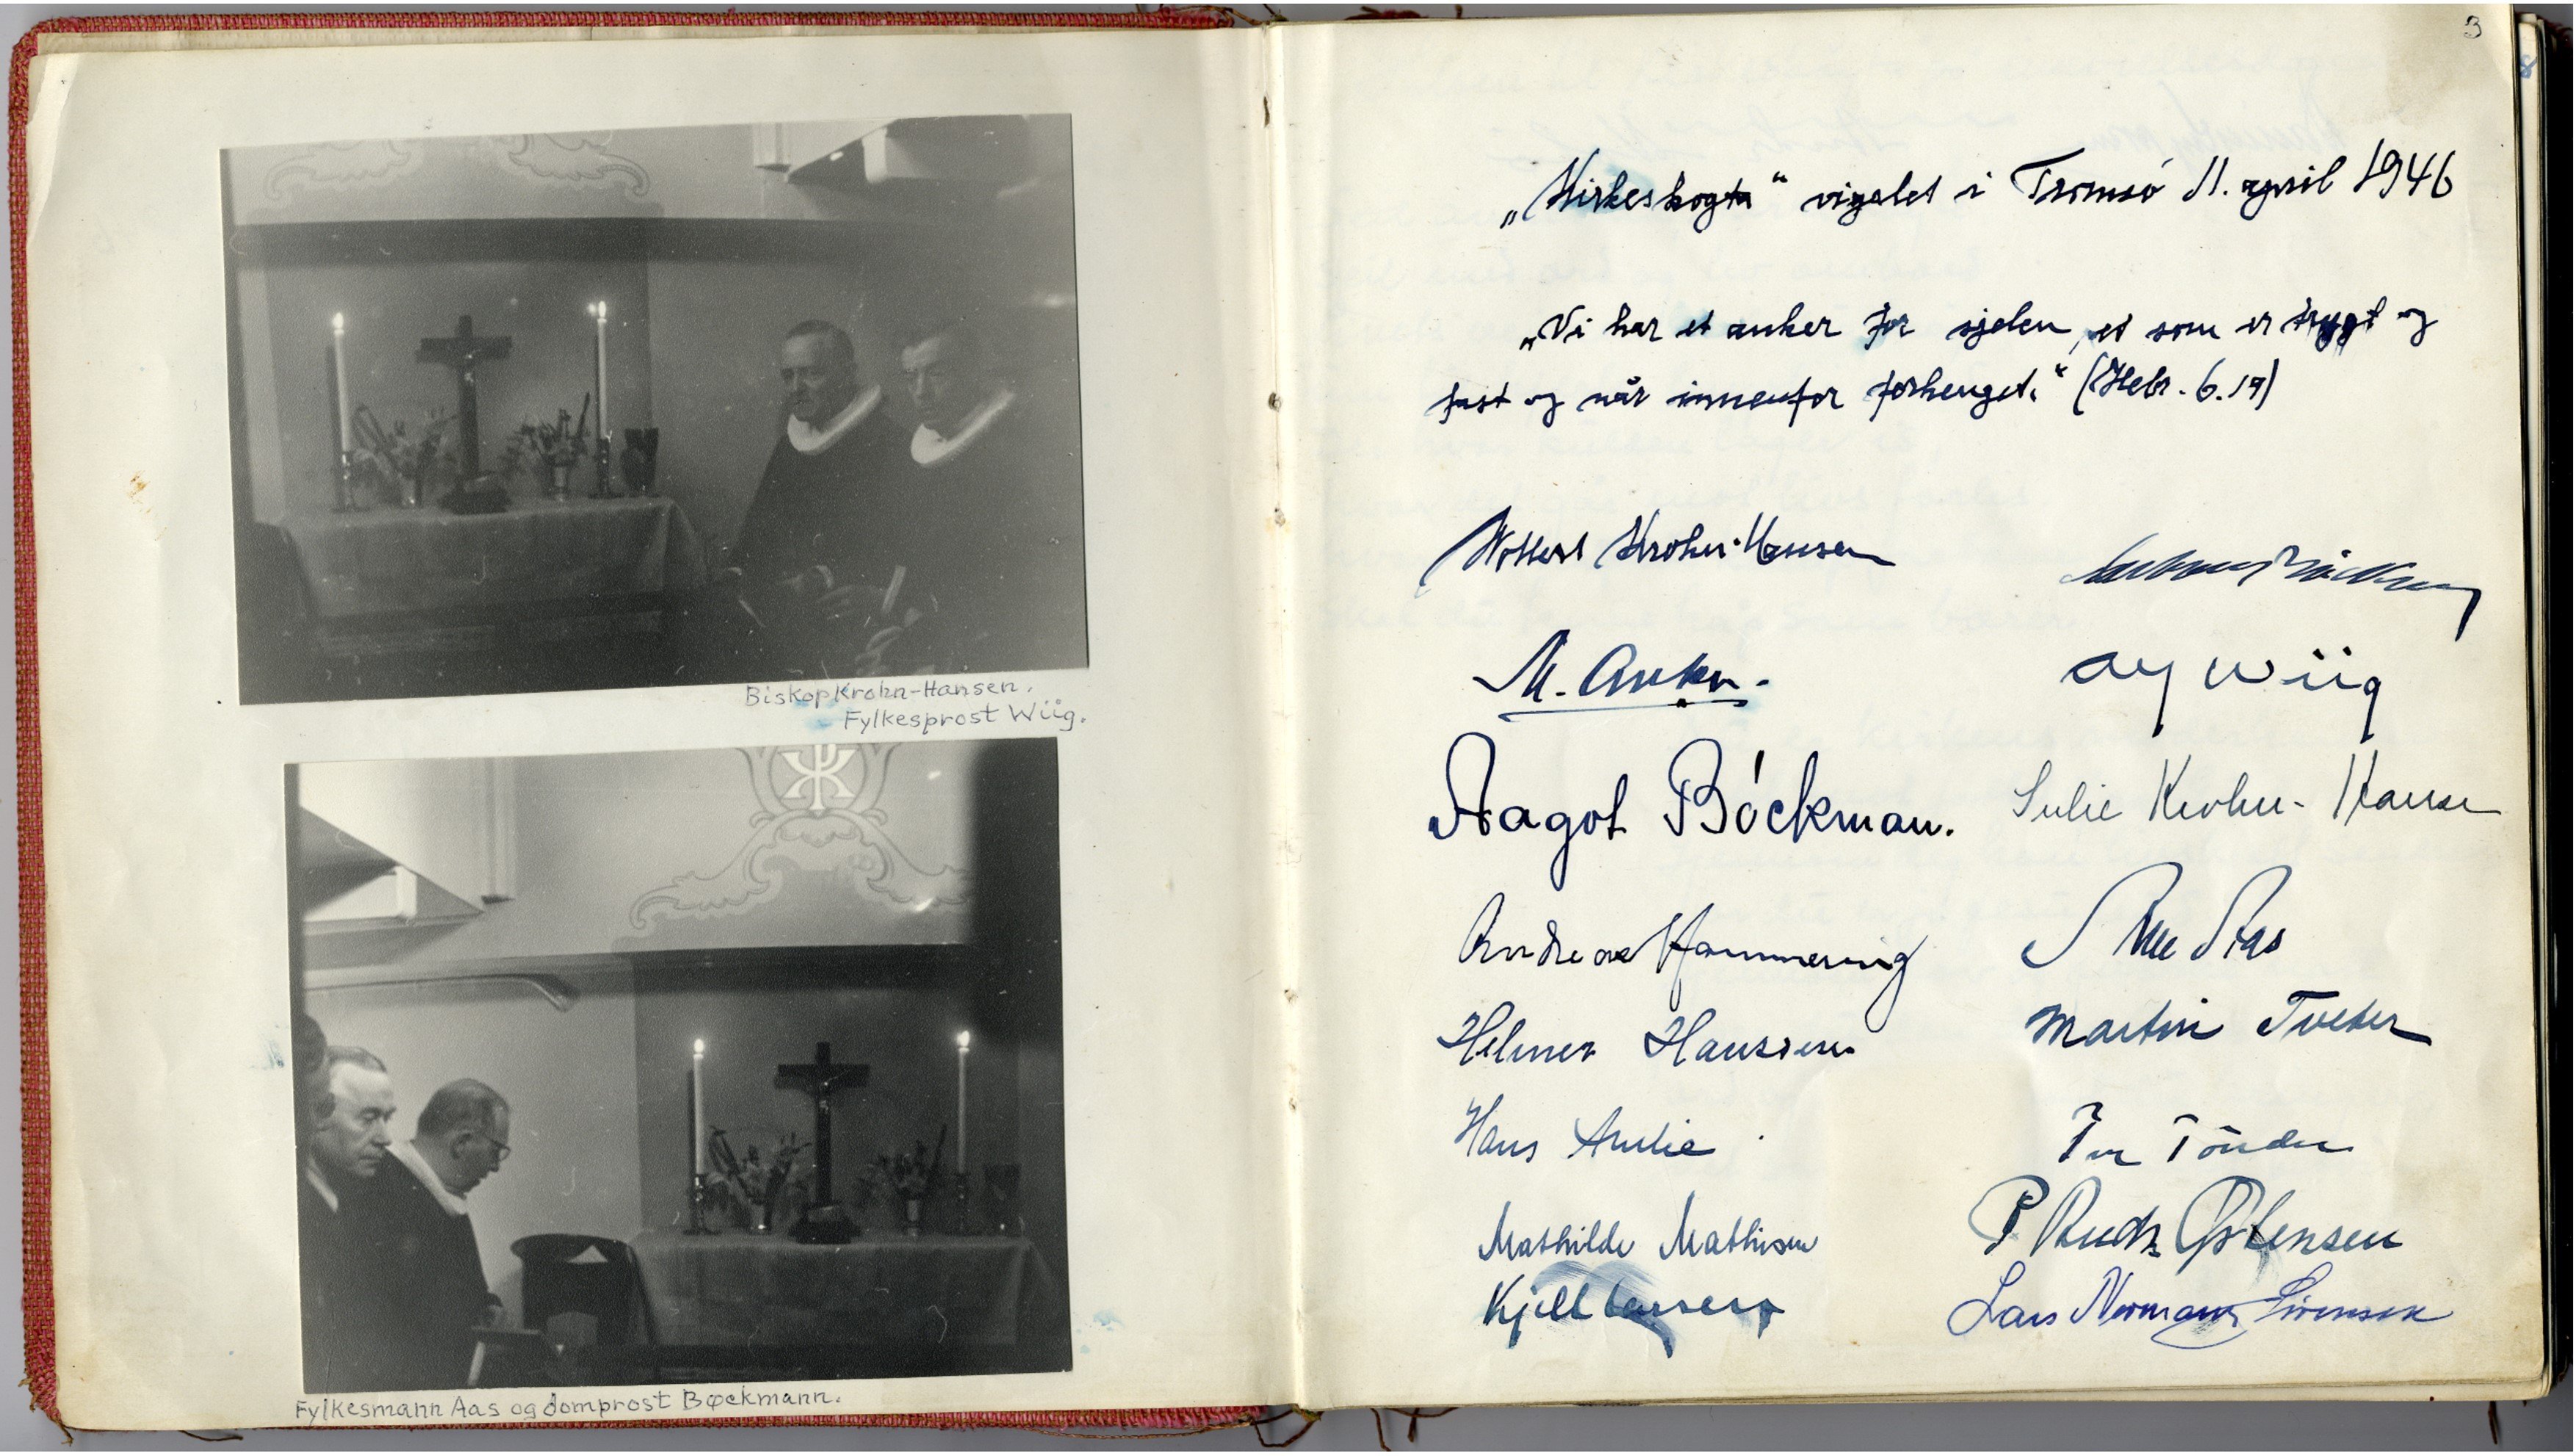 Biskop Krohn-Hansen.
Fylkesprost Wiig.
Fylkesmann Aas og domprost Bøckmann.
3
„Kirkeskogta“ vigslet i Tromsø 11. april 1946
„Vi har et anker for sjelen, et som er trygt og
fast og når innenfor forhenget.“ (Hebr. 6.19)
Wollert Krohn-Hansen
M. Anker.
Wiig
Aagot Bóckman.
Julie Krohn-Hansen
Andreas Hammering
Aas
Helmer Hanssen
Martin Tveter
Hans
Mathilde Mathisen
P
Kjell Larsen
Lars Normann Sørensen